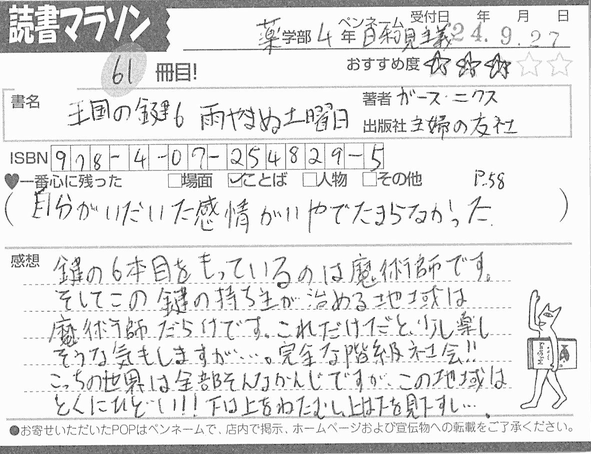 読書マラソン
薬学部 4年 ペンネーム 自和見主義 受付日 年 月 日 24.9.27
61 冊目!
おすすめ度 ★★★☆☆
書名 王国の鍵6 雨やまぬ土曜日
著者 ガース・ニクス
出版社 主婦の友社
ISBN 978-4-07-254829-5
♥一番心に残った □場面 ☑ことば □人物 □その他 P.58
(自分がいだいた感情がいやでたまらなかった)
感想 鍵の6本目をもっているのは魔術師です。
そしてこの鍵の持ち主が治める地域は
魔術師だらけです。これだけだと、少し楽し
そうな気もしますが…。完全な階級社会!!
こっちの世界は全部そんなかんじですが、この地域は
とくにひどい!! 下は上をねたむし、上は下を見下すし…。
●お寄せいただいたPOPはペンネームで、店内で掲示、ホームページおよび宣伝物への転載をご了承ください。